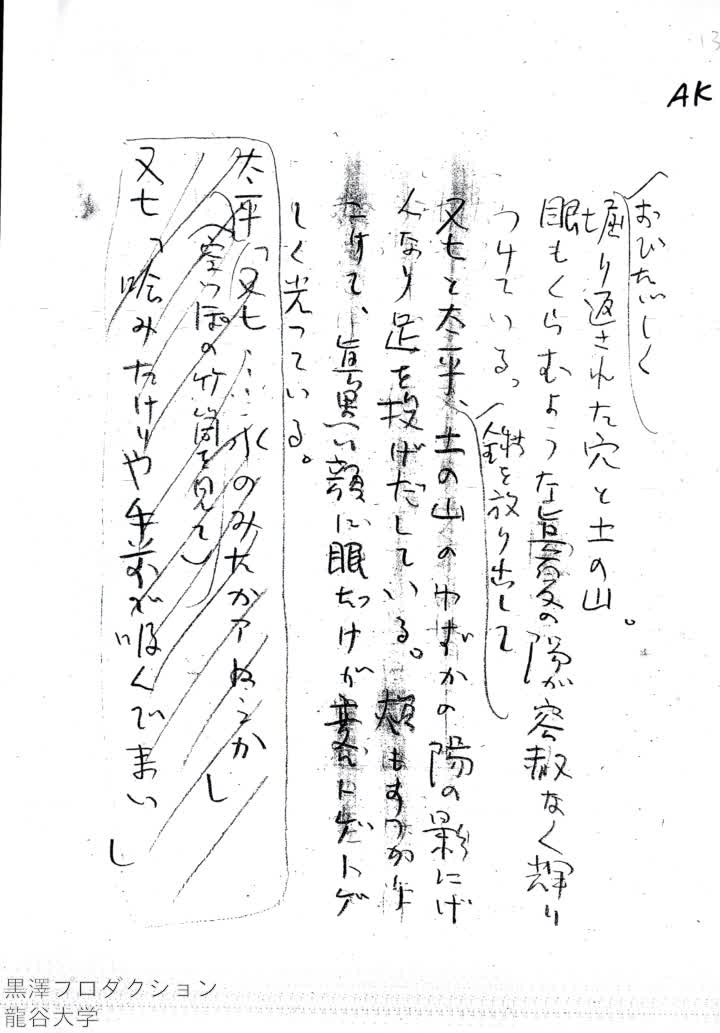 13
AK
おびただしく
堀り返された穴と土の山。
眼もくらむような眞夏の陽が容赦なく輝り
つけている。
鍬を放り出して
又七と太平、土の山のわずかの陽の影にげ
んなり足を投げだしている。頬もすっかり
たけて、眞黒い顔に眼だけが妻くトゲトゲ
しく光っている。
太平「又七……水のみたかァねえか」
(空っぽの竹筒を見て)
又七「呑みたけりや手前が吸んでまい」
黒澤プロダクション
龍谷大学